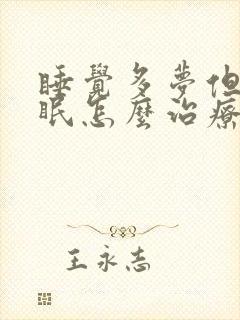 睡覺多夢但
眠怎麼治療
王永志